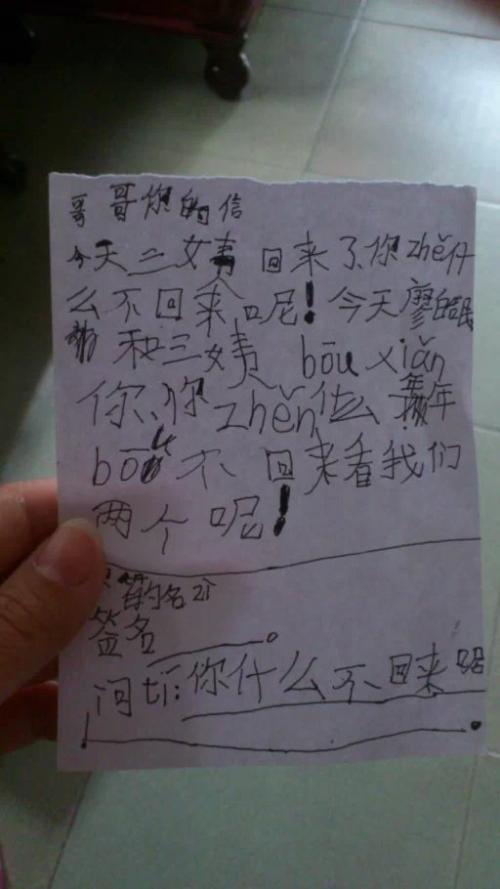 哥哥你的信
今天二姨回来了、你zhě什
么不回来呢！今天廖
和三姨 bōu xiǎn
你、你zhěn什么 年
bōu不回来看我们
两个呢！
的名
签名
问tí：你什么不回来呢